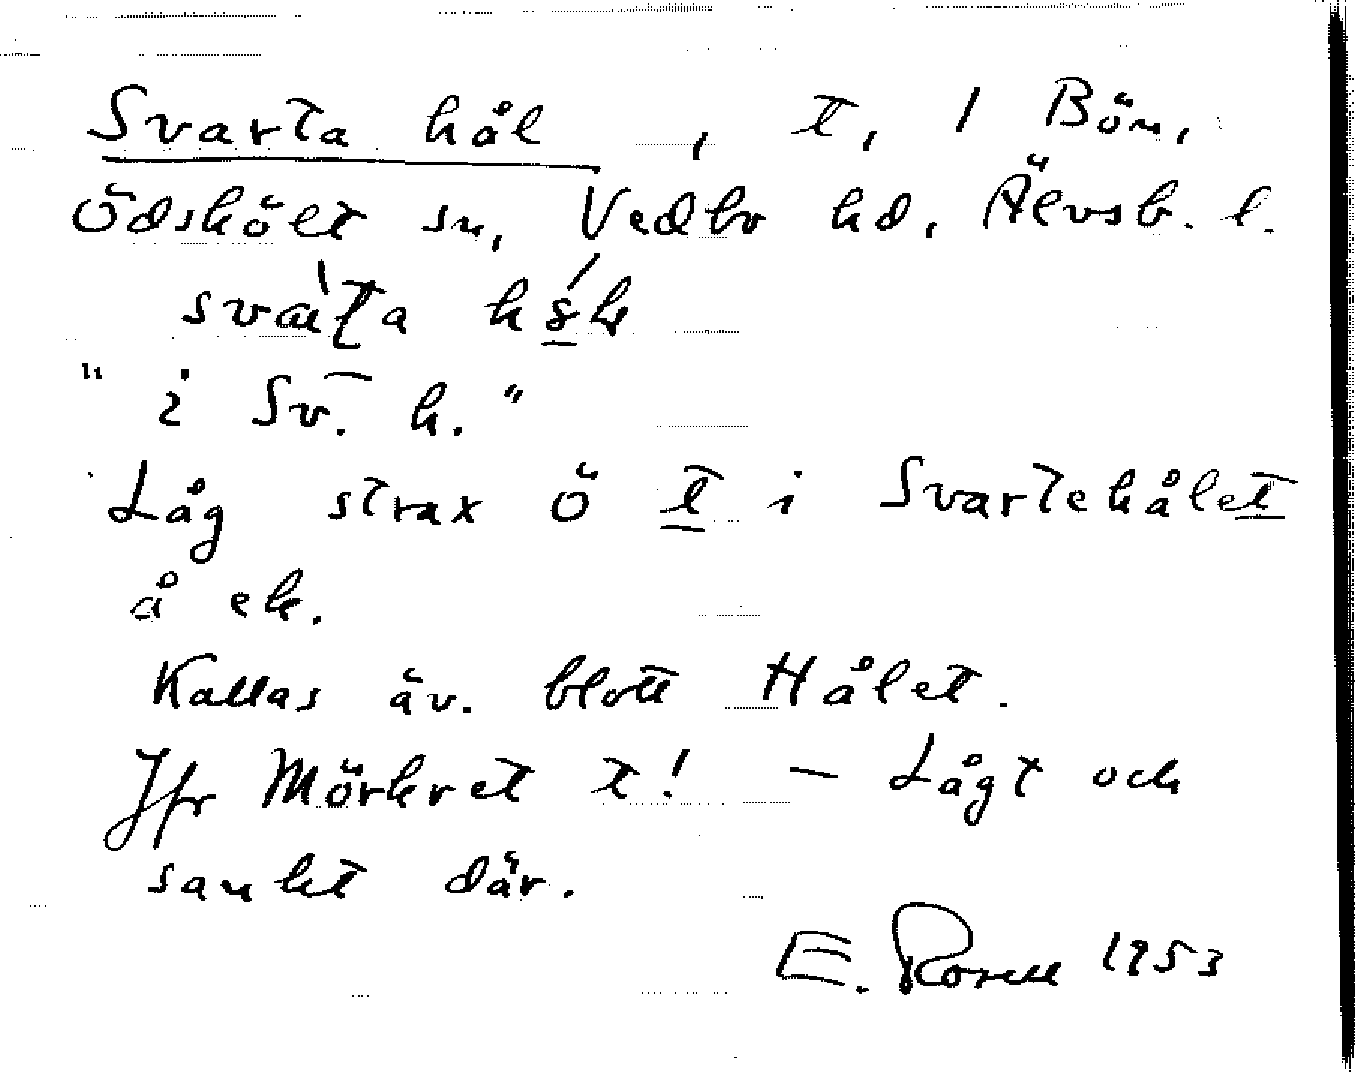 Svarta hål, t, 1 Bön,
Ödskölt sn, Vedbo hd, Älvsb. l.
"i Sv. h."
Låg strax ö t i Svartehålet
å ek.
Kallas äv. blott Hålet.
Jfr Mörkret t! — Lågt och
sankt där.
E. Rosell 1953